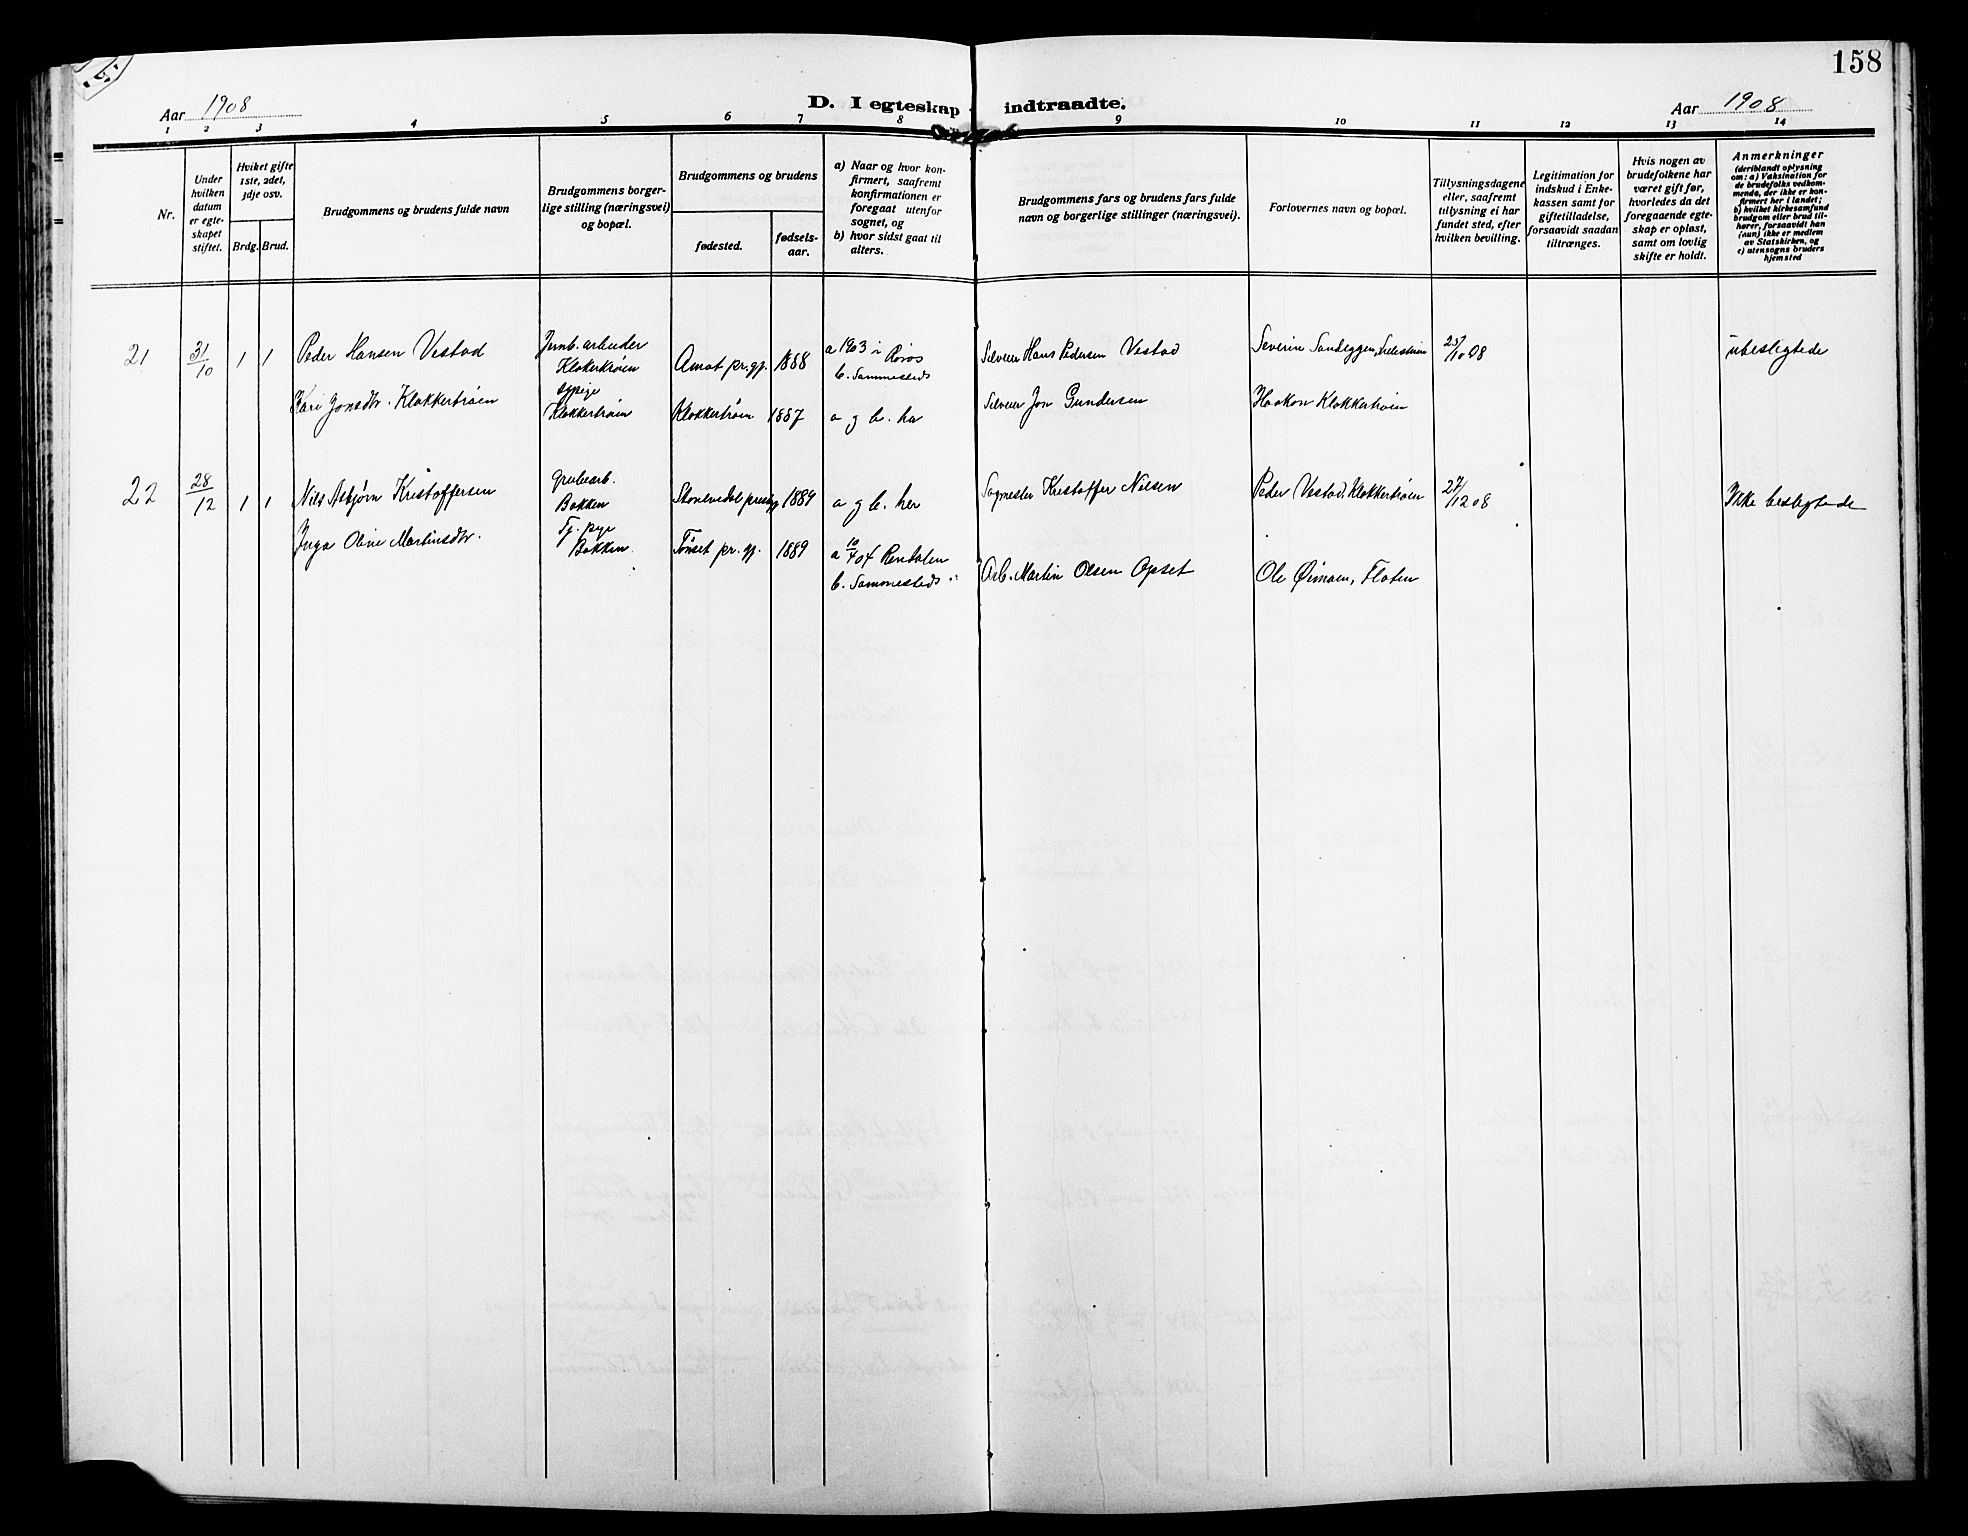 158
Aar 1908
D. I egteskap indtraadte.
Aar 1908
1 2 3 4 5 6 7 8 9 10 11 12 13 14
Nr.
Under hvilken datum er egteskapet stiftet.
Hviket gifte 1ste, 2det, 3dje osv.
Brdg. Brud.
Brudgommens og brudens fulde navn
Brudgommens borgerlige stilling (næringsvei) og bopæl.
Brudgommens og brudens
fødested.
fødselsaar.
a) Naar og hvor konfirmert, saafremt konfirmationen er foregaat utenfor sognet, og
b) hvor sidst gaat til alters.
Brudgommens fars og brudens fars fulde navn og borgerlige stillinger (næringsvei).
Forlovernes navn og bopæl.
Tillysningsdagene eller, saafremt tillysning ei har fundet sted, efter hvilken bevilling.
Legitimation for indskud i Enkekassen samt for giftetilladelse, forsaavidt saadan tiltrænges.
Hvis nogen av brudefolkene har været gift før, hvorledes da det foregaaende egteskap er opløst, samt om lovlig skifte er holdt.
Anmerkninger (deriblandt oplysning om: a) Vaksination for de brudefolks vedkommende, der ikke er konfirmert her i landet; b) hvilket kirkesamfund brudgom eller brud tilhører, forsaavidt han (hun) ikke er medlem av Statskirken, og c) utensogns bruders hjemsted
21 31/10 1 1 Peder Hansen Vestad Jernb. arbeider Klokkertrøen Amot pr.gj. 1888 a 1903 i Røros b. Sammesteds Selveier Hans Pedersen Vestad Severin Sandeggen, 25/10 08 ubeslegtede
Kari Jonsdtr. Klokkertrøen sypige Klokkertrøen Klokkertrøen 1887 a g b. her Selveier Jon Gundersen Haakon Klokkertrøen
22 28/12 1 1 Nils Asbjørn Kristoffersen grubearb. Bakken prestgj 1889 a g b. her Sagmester Kristoffer Nilsen Peder Vestad, Klokkertrøen 27/12 08 Ikke beslegtede
Inga Oline Martinsdtr. Tj. pige Bakken Tønset pr. gj. 1889 a 10/4 04 Rendalen b. Sammesteds Arb. Martin Olsen Opset Ole Øimoen, Floten